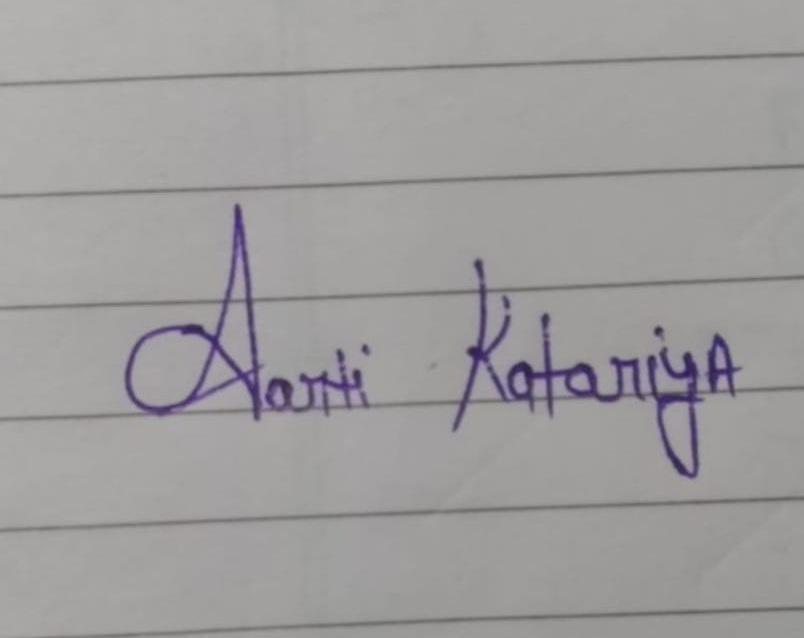 Aarti KatariyA